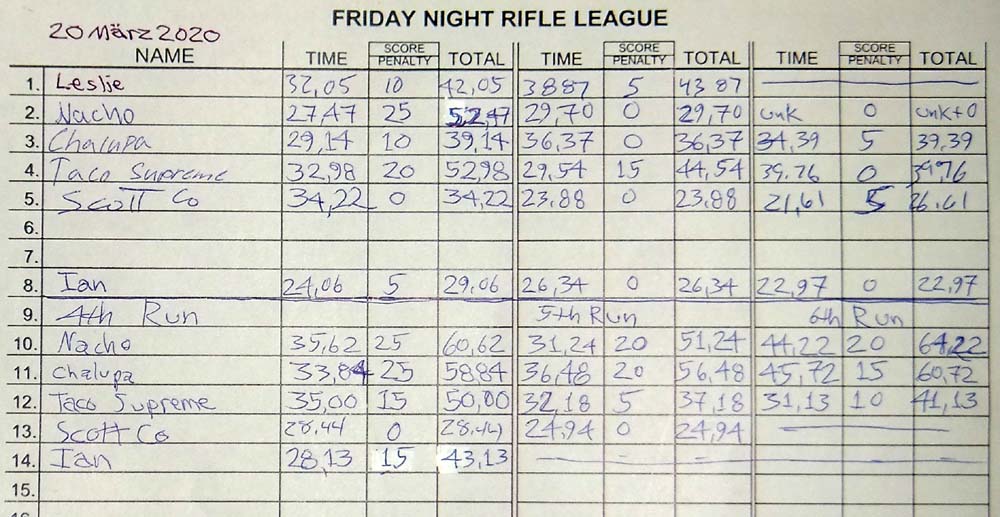 FRIDAY NIGHT RIFLE LEAGUE
20 März 2020
NAME TIME SCORE PENALTY TOTAL TIME SCORE PENALTY TOTAL TIME SCORE PENALTY TOTAL
1. Leslie 32,05 10 42,05 38 87 5 43 87
2. Nacho 27,47 25 52,47 29,70 0 29,70 unk 0 unk+0
3. Chalupa 29,14 10 39,14 36,37 0 36,37 34,39 5 39,39
4. Taco Supreme 32,98 20 52,98 29,54 15 44,54 39.76 0 39,76
5. Scott Co 34,22 0 34,22 23.88 0 23,88 21,61 5 26.61
6.
7.
8. Ian 24,06 5 29,06 26,34 0 26,34 22,97 0 22,97
9. 4th Run 5th Run 6th Run
10. Nacho 35,62 25 60,62 31,24 20 51,24 44,22 20 64,22
11. Chalupa 33,84 25 58,84 36,48 20 56,48 45,72 15 60,72
12. Taco Supreme 35,00 15 50,00 32,18 5 37,18 31,13 10 41,13
13. Scott Co 28.44 0 28.44 24,94 0 24,94
14. Ian 28,13 15 43,13
15.